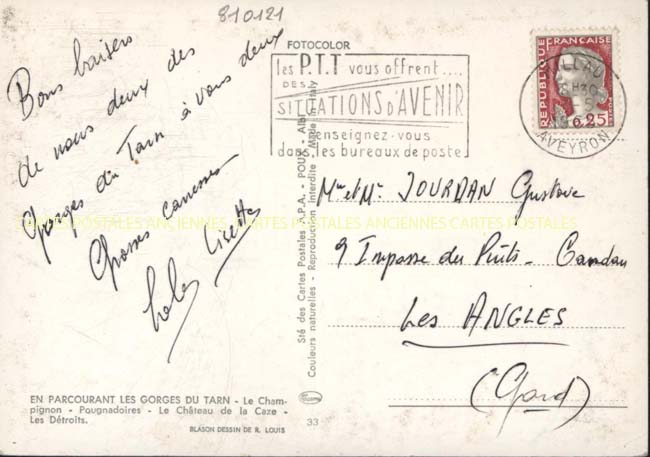 810121
Bons baisers
de nous deux des
Gorges du Tarn à vous deux
Grosses caresses
Lolo Lisette
FOTOCOLOR
les P.T.T vous offrent....
DES
SITUATIONS d'AVENIR
renseignez-vous
dans les bureaux de poste
REPUBLIQUE FRANÇAISE
0,25
MILLAU
AVEYRON
Sté des Cartes Postales A.P.A. - POUX - Albi
Couleurs naturelles - Reproduction Interdite - Made in Italy
Mme et Mr JOURDAN Gustave
9 Impasse du Puits - Candau
Les ANGLES
(Gard)
CARTES POSTALES ANCIENNES CARTES POSTALES ANCIENNES CARTES POSTALES
EN PARCOURANT LES GORGES DU TARN - Le Cham-
pignon - Pougnadoires - Le Château de la Caze -
Les Détroits.
BLASON DESSIN DE R. LOUIS
33